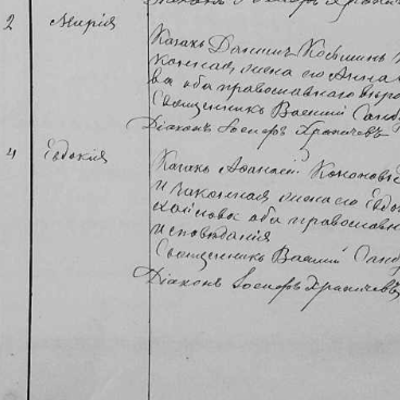 2 Мария
Казакъ Даниилъ Косьминъ
конная жена его Анна
ва оба православнаго веро
Священникъ Василий Санд
Диаконъ Иосифъ Храпичевъ
4 Евдокия
Казакъ Афанасий Кононовъ
и законная жена его Евдо
оба православн
исповедания
Священникъ Василий Санд
Диаконъ Иосифъ Храпичевъ